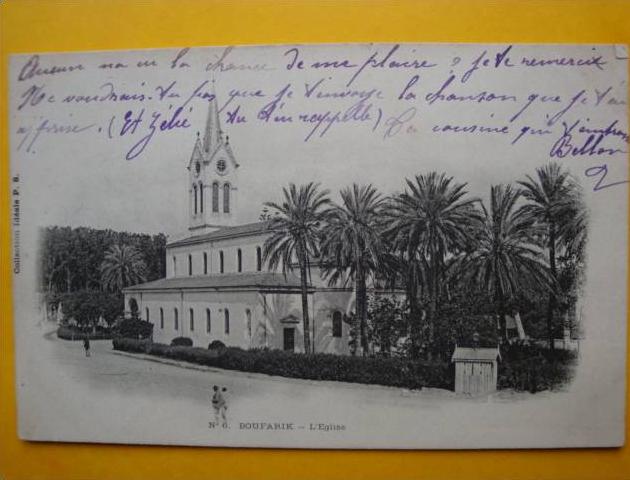 Aucun n'a eu la chance de me plaire ? Je te remercie
Ne voudrais-tu pas que je t'envoye la chanson que je t'ai
apprise. (Et Zélie, tu t'en rappelle) Ta cousine qui t'embrasse
Bellon
Collection Idéale P. S.
N° 6. BOUFARIK - L'Eglise